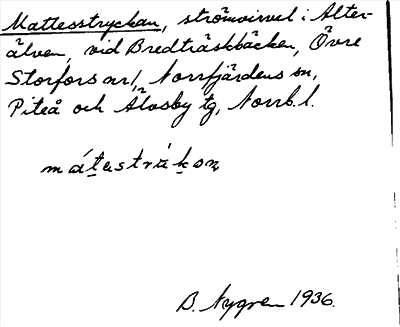 Mattesstryckan, strömvirvel i Alter-
älven, vid Bredträskbäcken, Övre
Storfors arr, Norrfjärdens sn,
Piteå och Älvsby tg, Norrb. l.
B. Nygren 1936.